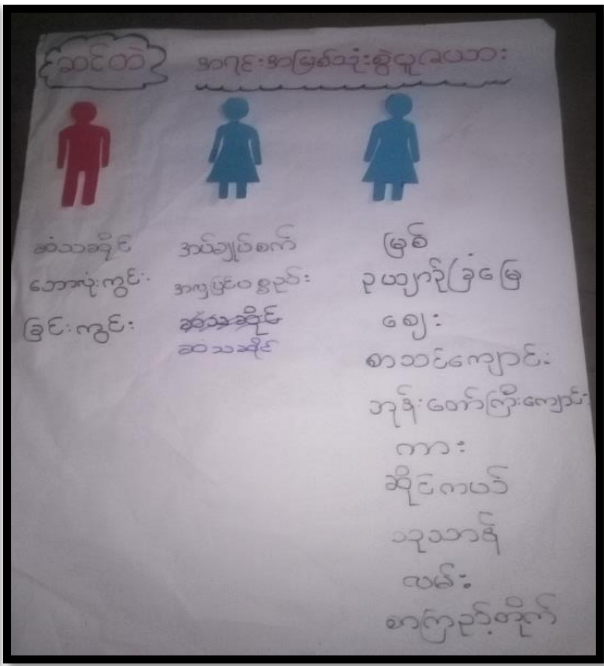 ဆင်တဲ
အရင်းအမြစ်သုံးစွဲမှုဇယား
ဆံသဆိုင်
ဘောလုံးကွင်း
ခြင်းကွင်း
အပ်ချုပ်စက်
အလှပြင်ပစ္စည်း
ဆံသဆိုင်
ဆံသဆိုင်
မြစ်
ဥယျာဉ်ခြံမြေ
ဈေး
စာသင်ကျောင်း
ဘုန်းတော်ကြီးကျောင်း
ကား
ဆိုင်ကယ်
သုသာန်
လမ်း
စာကြည့်တိုက်